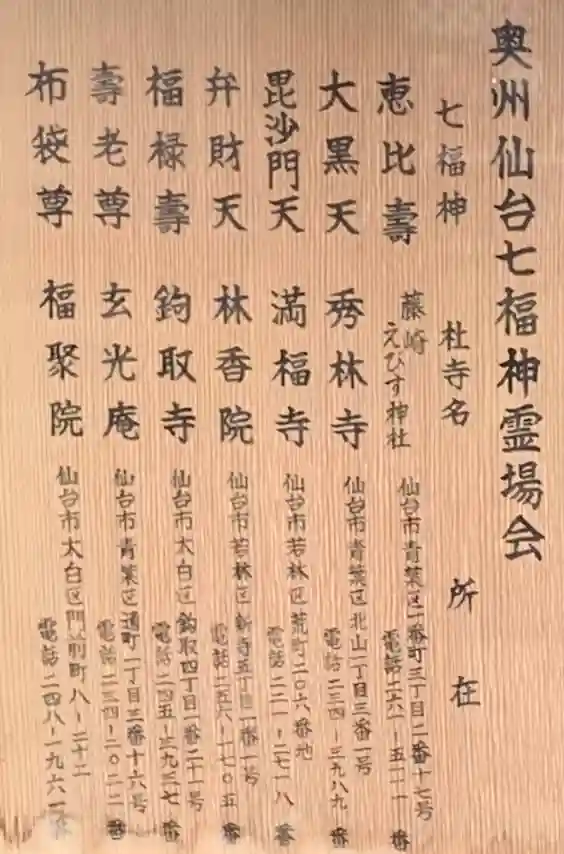 奥州仙台七福神霊場会
七福神 社寺名 所在
恵比壽 藤崎えびす神社 仙台市青葉区一番町三丁目二番十七号
電話二六一ー五一一一番
大黒天 秀林寺 仙台市青葉区北山一丁目三番一号
電話二三四ー三九八九番
毘沙門天 満福寺 仙台市若林区荒町二〇六番地
電話二二一ー二七一八番
弁財天 林香院 仙台市若林区新寺五丁目一番一号
電話二五六ー一七〇五番
福禄壽 鈎取寺 仙台市太白区鈎取四丁目一番二十一号
電話二四五ー三九三七番
壽老尊 玄光庵 仙台市青葉区通町一丁目三番十六号
電話二三四ー二〇二二番
布袋尊 福聚院 仙台市太白区門前町八ー二十二
電話二四八ー一九六一番